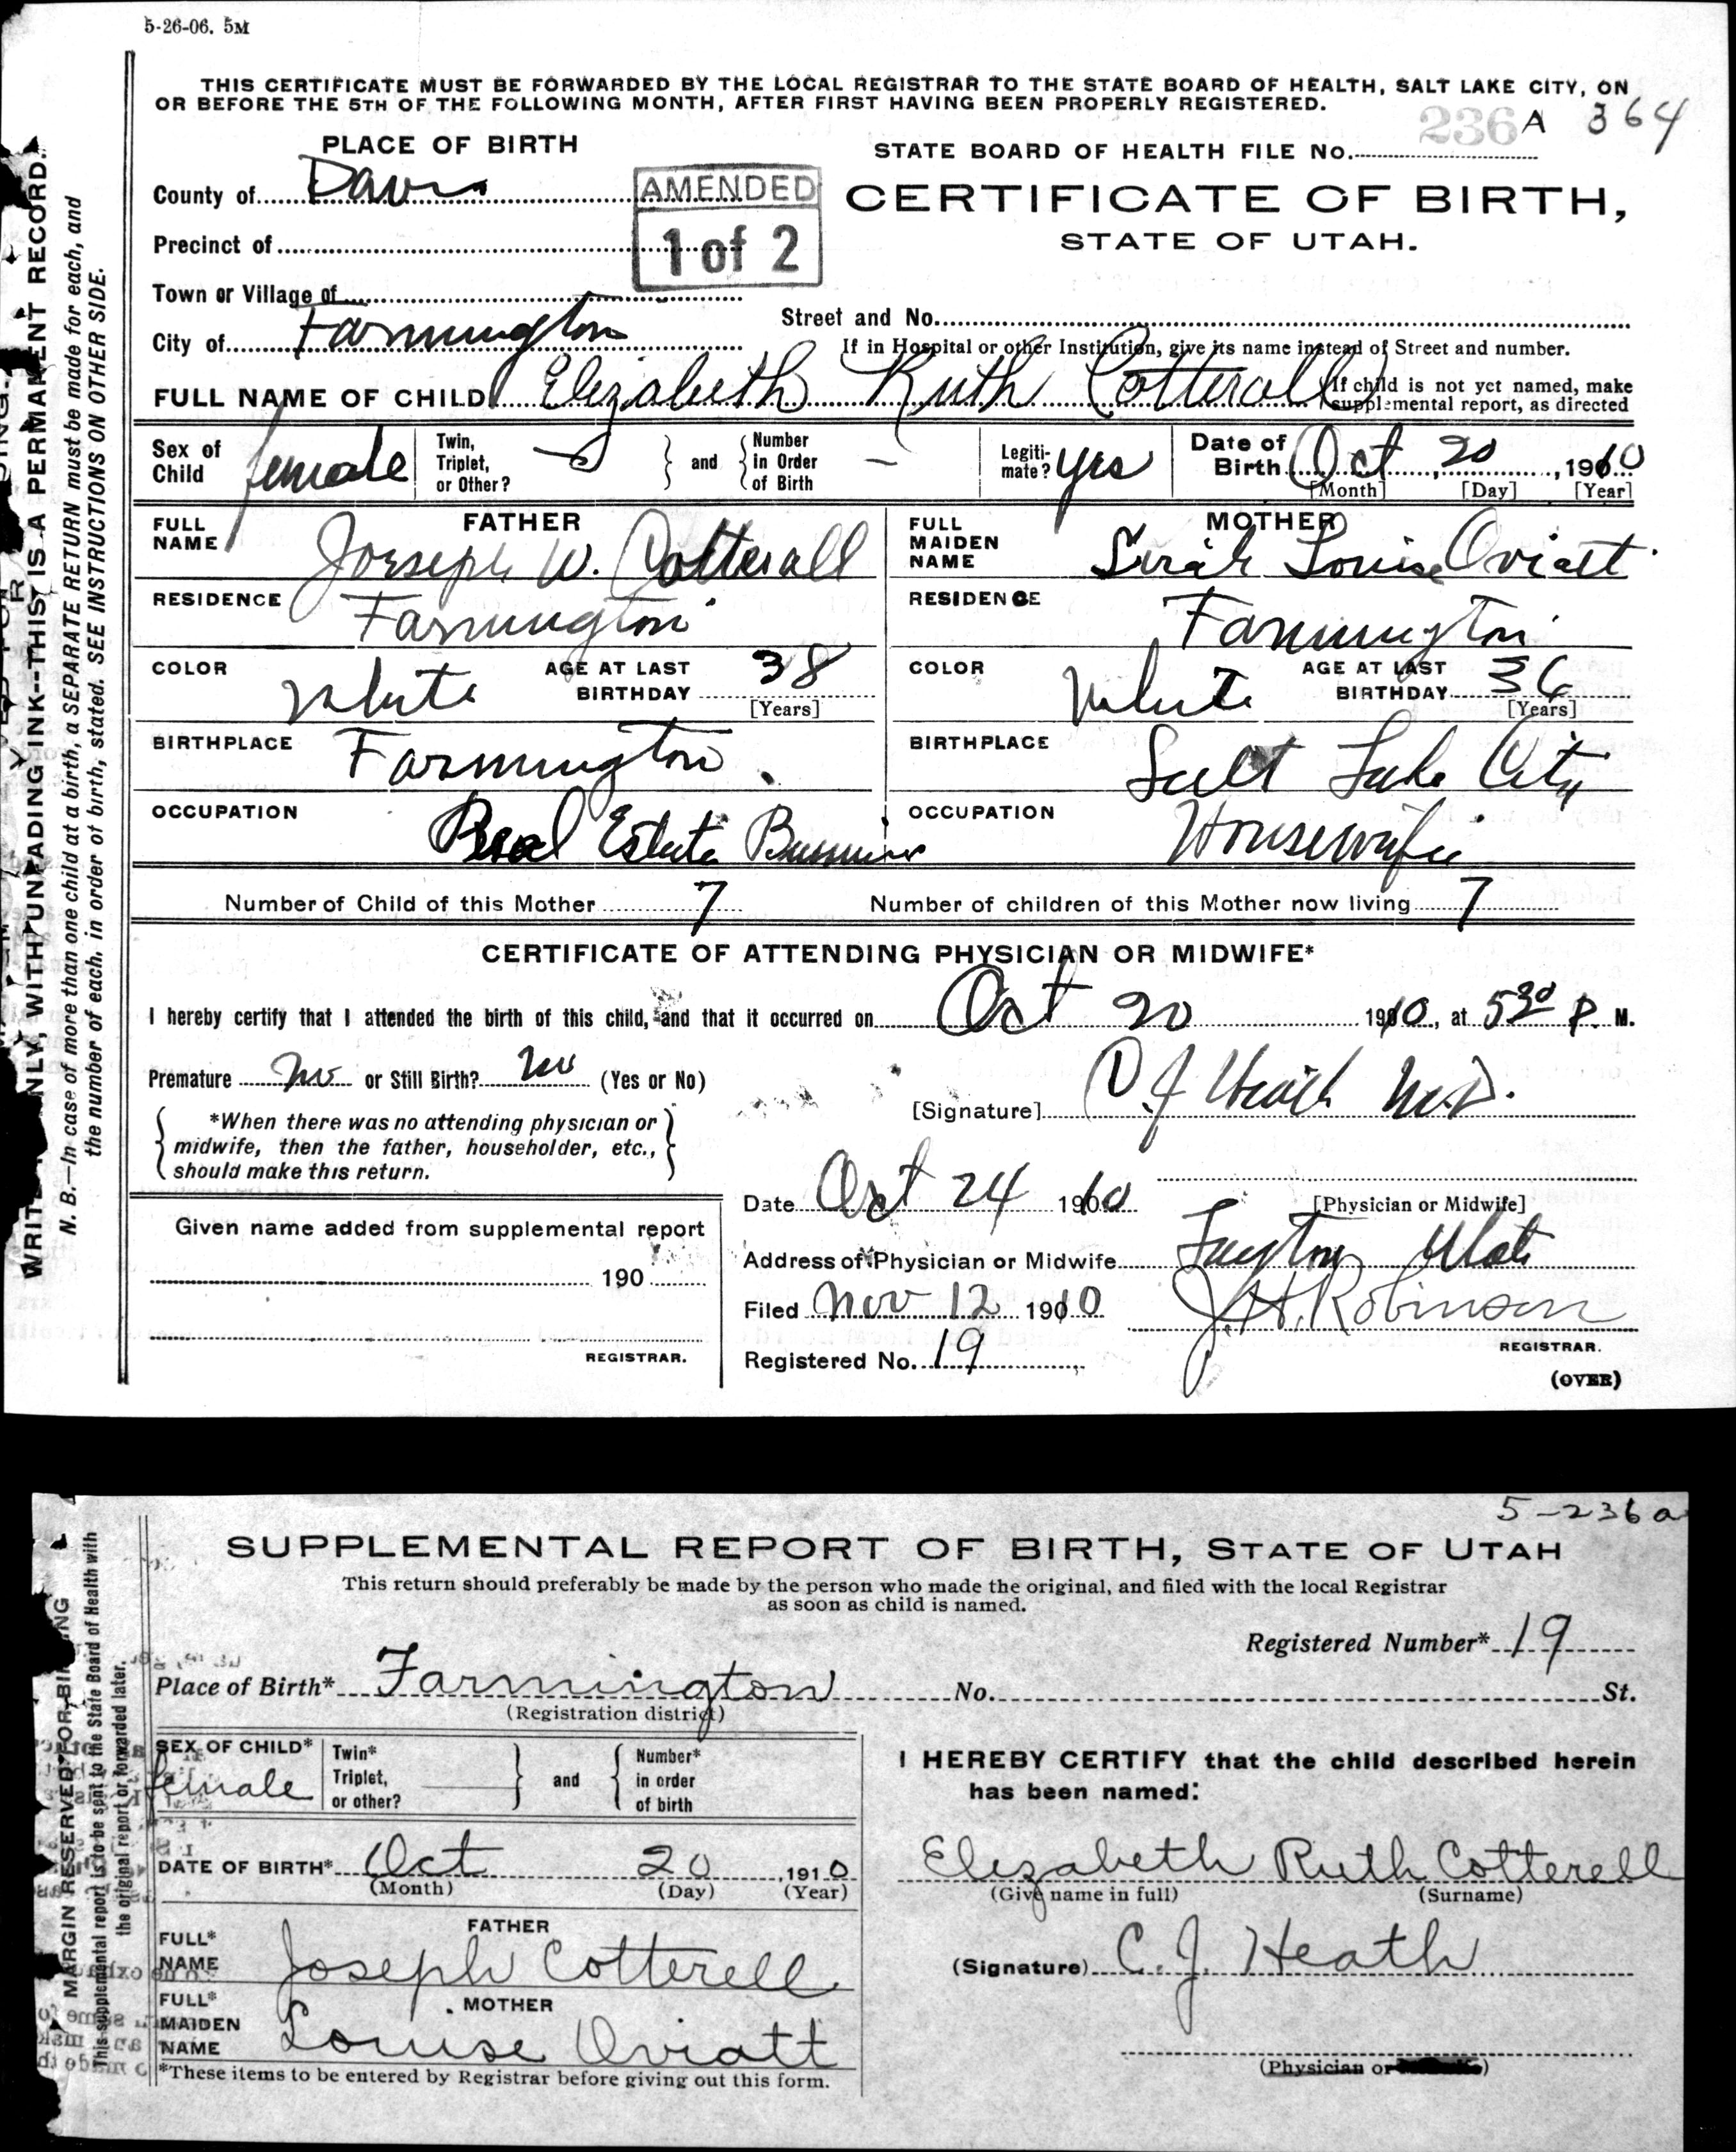 5-26-06. 5M
THIS CERTIFICATE MUST BE FORWARDED BY THE LOCAL REGISTRAR TO THE STATE BOARD OF HEALTH, SALT LAKE CITY, ON
OR BEFORE THE 5TH OF THE FOLLOWING MONTH, AFTER FIRST HAVING BEEN PROPERLY REGISTERED.
236 A 364
PLACE OF BIRTH
STATE BOARD OF HEALTH FILE No.
County of Davis
AMENDED
1 of 2
CERTIFICATE OF BIRTH,
STATE OF UTAH.
Precinct of
Town or Village of
Street and No.
City of Farmington
If in Hospital or other Institution, give its name instead of Street and number.
FULL NAME OF CHILD Elizabeth Ruth Cotterall
If child is not yet named, make
supplemental report, as directed
Sex of Child female
Twin, Triplet, or Other?
and Number in Order of Birth –
Legiti-mate? yes
Date of Birth Oct 20, 1910
[Month] [Day] [Year]
FATHER
FULL NAME Jorseph W. Cotterall
RESIDENCE Farmington
COLOR White AGE AT LAST BIRTHDAY 38
[Years]
BIRTHPLACE Farmington
OCCUPATION Real Estate Business
MOTHER
FULL MAIDEN NAME Sarah Louise Oviatt
RESIDENCE Farmington
COLOR White AGE AT LAST BIRTHDAY 36
[Years]
BIRTHPLACE Salt Lake City
OCCUPATION Housewife
Number of Child of this Mother 7 Number of children of this Mother now living 7
CERTIFICATE OF ATTENDING PHYSICIAN OR MIDWIFE*
I hereby certify that I attended the birth of this child, and that it occurred on Oct 20 1910, at 5 30 P. M.
Premature no or Still Birth? no (Yes or No)
[Signature] C J Heath M.D.
*When there was no attending physician or
midwife, then the father, householder, etc.,
should make this return.
Date Oct 24 1910
[Physician or Midwife]
Given name added from supplemental report
190
REGISTRAR.
Address of Physician or Midwife Layton Utah
Filed Nov 12 1910 J. H. Robinson
REGISTRAR.
Registered No. 19
(OVER)
WRITE ONLY, WITH UNFADING INK--THIS IS A PERMANENT RECORD.
N. B.—In case of more than one child at a birth, a SEPARATE RETURN must be made for each, and
the number of each, in order of birth, stated. SEE INSTRUCTIONS ON OTHER SIDE.
5-236a
SUPPLEMENTAL REPORT OF BIRTH, STATE OF UTAH
This return should preferably be made by the person who made the original, and filed with the local Registrar
as soon as child is named.
Registered Number* 19
Place of Birth* Farmington No. St.
(Registration district)
SEX OF CHILD* female
Twin* Triplet, or other?
and Number* in order of birth
DATE OF BIRTH* Oct 20, 1910
(Month) (Day) (Year)
FATHER
FULL* NAME Joseph Cotterell
MOTHER
FULL* MAIDEN NAME Louise Oviatt
*These items to be entered by Registrar before giving out this form.
I HEREBY CERTIFY that the child described herein
has been named:
Elizabeth Ruth Cotterell
(Give name in full) (Surname)
(Signature) C. J. Heath
(Physician or
MARGIN RESERVED FOR BINDING
This supplemental report is to be sent to the State Board of Health with
the original report or forwarded later.